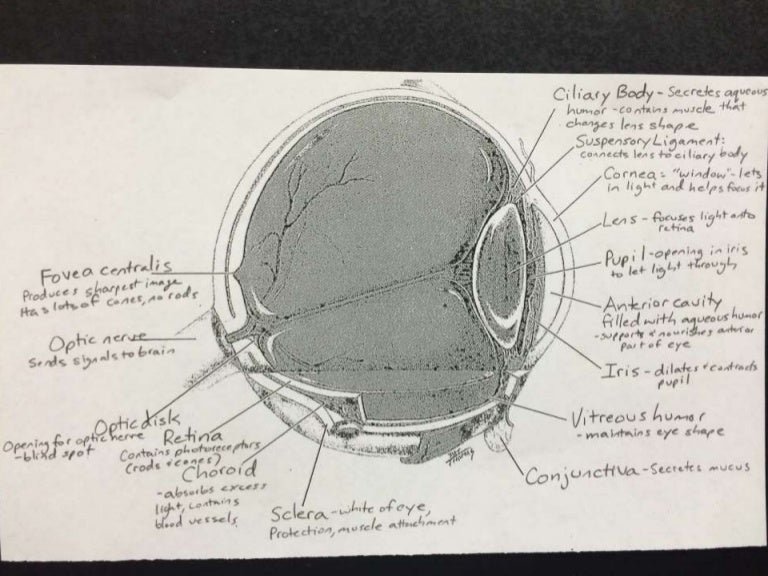 Ciliary Body - Secretes aqueous
humor - contains muscle that
changes lens shape
Suspensory Ligament:
connects lens to ciliary body
Cornea = "window" - lets
in light and helps focus it
Lens - focuses light onto
retina
Pupil - opening in iris
to let light through
Anterior cavity
filled with aqueous humor
- supports + nourishes anterior
part of eye
Iris - dilates + contracts
pupil
Vitreous humor
- maintains eye shape
Conjunctiva - Secretes mucus
Fovea centralis
Produces sharpest image
Has lots of cones, no rods
Optic nerve
Sends signals to brain
Optic disk
Opening for optic nerve
- blind spot
Retina
Contains photoreceptors
(rods + cones)
Choroid
- absorbs excess
light, contains
blood vessels
Sclera - white of eye,
Protection, muscle attachment